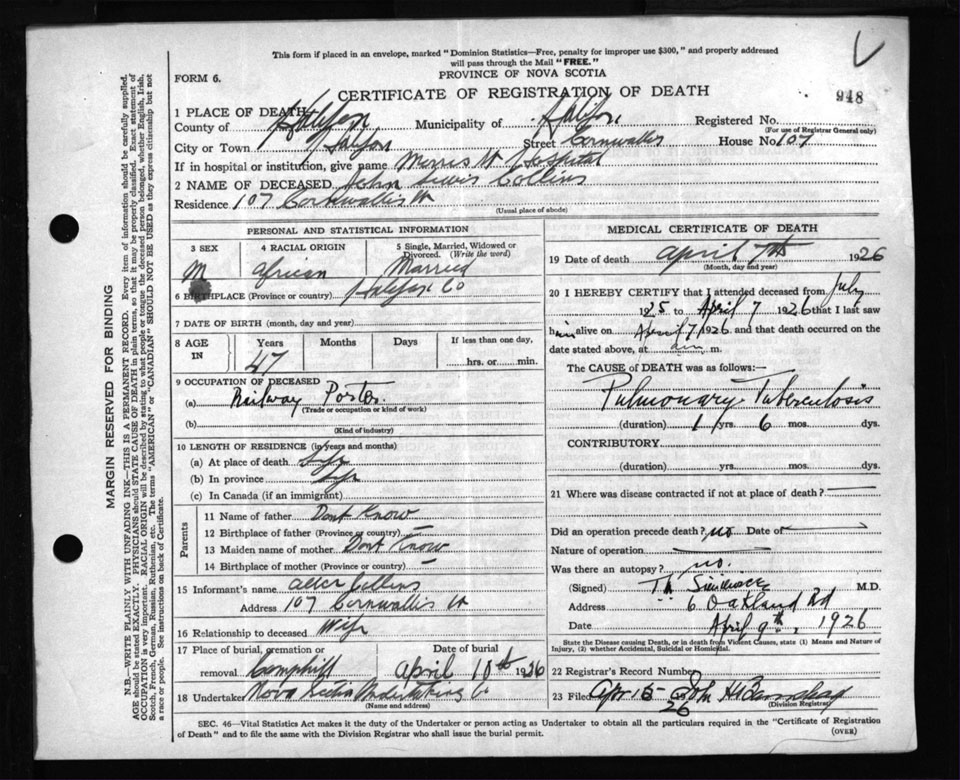 This form if placed in an envelope, marked "Dominion Statistics—Free, penalty for improper use $300," and properly addressed
will pass through the Mail "FREE."
PROVINCE OF NOVA SCOTIA
FORM 6.
CERTIFICATE OF REGISTRATION OF DEATH
948
1 PLACE OF DEATH
County of Halifax Municipality of Halifax Registered No.
(For use of Registrar General only)
City or Town Halifax Street Cornwallis House No. 107
If in hospital or institution, give name Morris St Hospital
2 NAME OF DECEASED John Lewis Collins
Residence 107 Cornwallis St
(Usual place of abode)
PERSONAL AND STATISTICAL INFORMATION
3 SEX 4 RACIAL ORIGIN 5 Single, Married, Widowed or
Divorced. (Write the word)
M African Married
6 BIRTHPLACE (Province or country) Halifax Co
7 DATE OF BIRTH (month, day and year)
8 AGE IN Years Months Days If less than one day,
47 hrs. or min.
9 OCCUPATION OF DECEASED
(a) Railway Porter
(Trade or occupation or kind of work)
(b)
(Kind of industry)
10 LENGTH OF RESIDENCE (in years and months)
(a) At place of death Life
(b) In province Life
(c) In Canada (if an immigrant)
Parents
11 Name of father Dont Know
12 Birthplace of father (Province or country) —
13 Maiden name of mother Dont Know
14 Birthplace of mother (Province or country) —
15 Informant's name Collins
Address 107 Cornwallis St
16 Relationship to deceased Wife
17 Place of burial, cremation or Date of burial
removal Camphill April 10th 1926
18 Undertaker Nova Scotia Undertaking Co
(Name and address)
MEDICAL CERTIFICATE OF DEATH
19 Date of death April 7th 1926
(Month, day and year)
20 I HEREBY CERTIFY that I attended deceased from July
1925 to April 7 1926 that I last saw
him alive on April 7 1926 and that death occurred on the
date stated above, at am m.
The CAUSE of DEATH was as follows:—
Pulmonary Tuberculosis
(duration) 1 yrs. 6 mos. dys.
CONTRIBUTORY
(duration) yrs. mos. dys.
21 Where was disease contracted if not at place of death? —
Did an operation precede death? no Date of —
Nature of operation —
Was there an autopsy? no.
(Signed) M.D.
Address 6 Oakland Rd
Date April 9th, 1926
State the Disease causing Death, or in death from Violent Causes, state (1) Means and Nature of
Injury, (2) whether Accidental, Suicidal or Homicidal.
22 Registrar's Record Number
23 Filed Apr 15 26 John H
(Division Registrar)
SEC. 46—Vital Statistics Act makes it the duty of the Undertaker or person acting as Undertaker to obtain all the particulars required in the "Certificate of Registration
of Death" and to file the same with the Division Registrar who shall issue the burial permit.
(OVER)
MARGIN RESERVED FOR BINDING
N.B.—WRITE PLAINLY WITH UNFADING INK—THIS IS A PERMANENT RECORD. Every item of information should be carefully supplied.
AGE should be stated EXACTLY. PHYSICIANS should STATE CAUSE OF DEATH in plain terms, so that it may be properly classified. Exact statement of
OCCUPATION is very important. RACIAL ORIGIN will be described by stating to what people or tongue the deceased person belonged, whether English, Irish,
Scotch, French, German, Russian, Ruthenian, etc. The terms "AMERICAN" or "CANADIAN" SHOULD NOT BE USED as they express citizenship but not
a race or people. See instructions on back of Certificate.